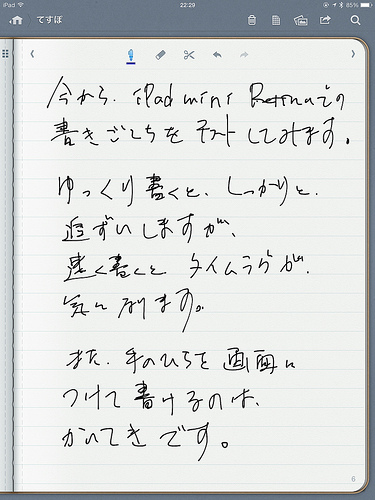 iPad 22:29 85%
てすぽ
今から、iPad mini Retinaでの
書きごこちをテストしてみます。
ゆっくり書くと、しっかりと、
追ずいしますが、
速く書くと タイムラグが、
気になります。
また、手のひらを画面に
つけて書けるのは、
かいてきです。
6